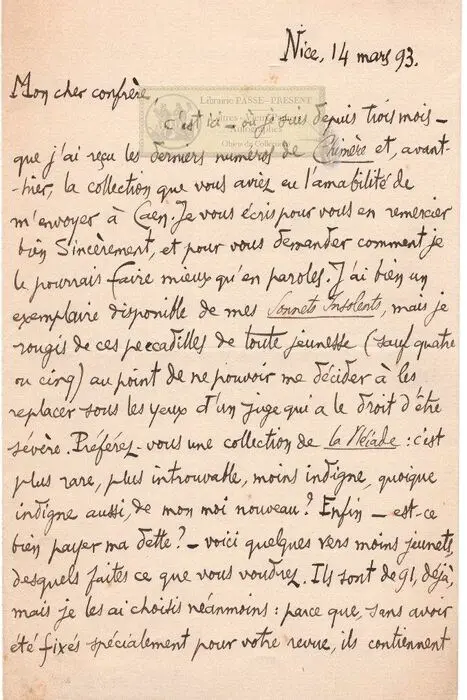 Nice, 14 mars 93.
Mon cher confrère
Librairie PASSE-PRESENT
c'est ici – où je suis depuis trois mois –
que j'ai reçu les derniers numéros de Chimère et, avant-
-hier, la collection que vous aviez eu l'amabilité de
m'envoyer à Caen. Je vous écris pour vous en remercier
bien sincèrement, et pour vous demander comment je
le pourrais faire mieux qu'en paroles. J'ai bien un
exemplaire disponible de mes Sonnets Insolents, mais je
rougis de ces peccadilles de toute jeunesse (sauf quatre
ou cinq) au point de ne pouvoir me décider à les
replacer sous les yeux d'un juge qui a le droit d'être
sévère. Préférez-vous une collection de la Pléiade : c'est
plus rare, plus introuvable, moins indigne, quoique
indigne aussi, de mon moi nouveau ? Enfin – est-ce
bien payer ma dette ? – voici quelques vers moins jeunets,
desquels faites ce que vous voudrez. Ils sont de 91, déjà,
mais je les ai choisis néanmoins : parce que, sans avoir
été fixés spécialement pour votre revue, ils contiennent